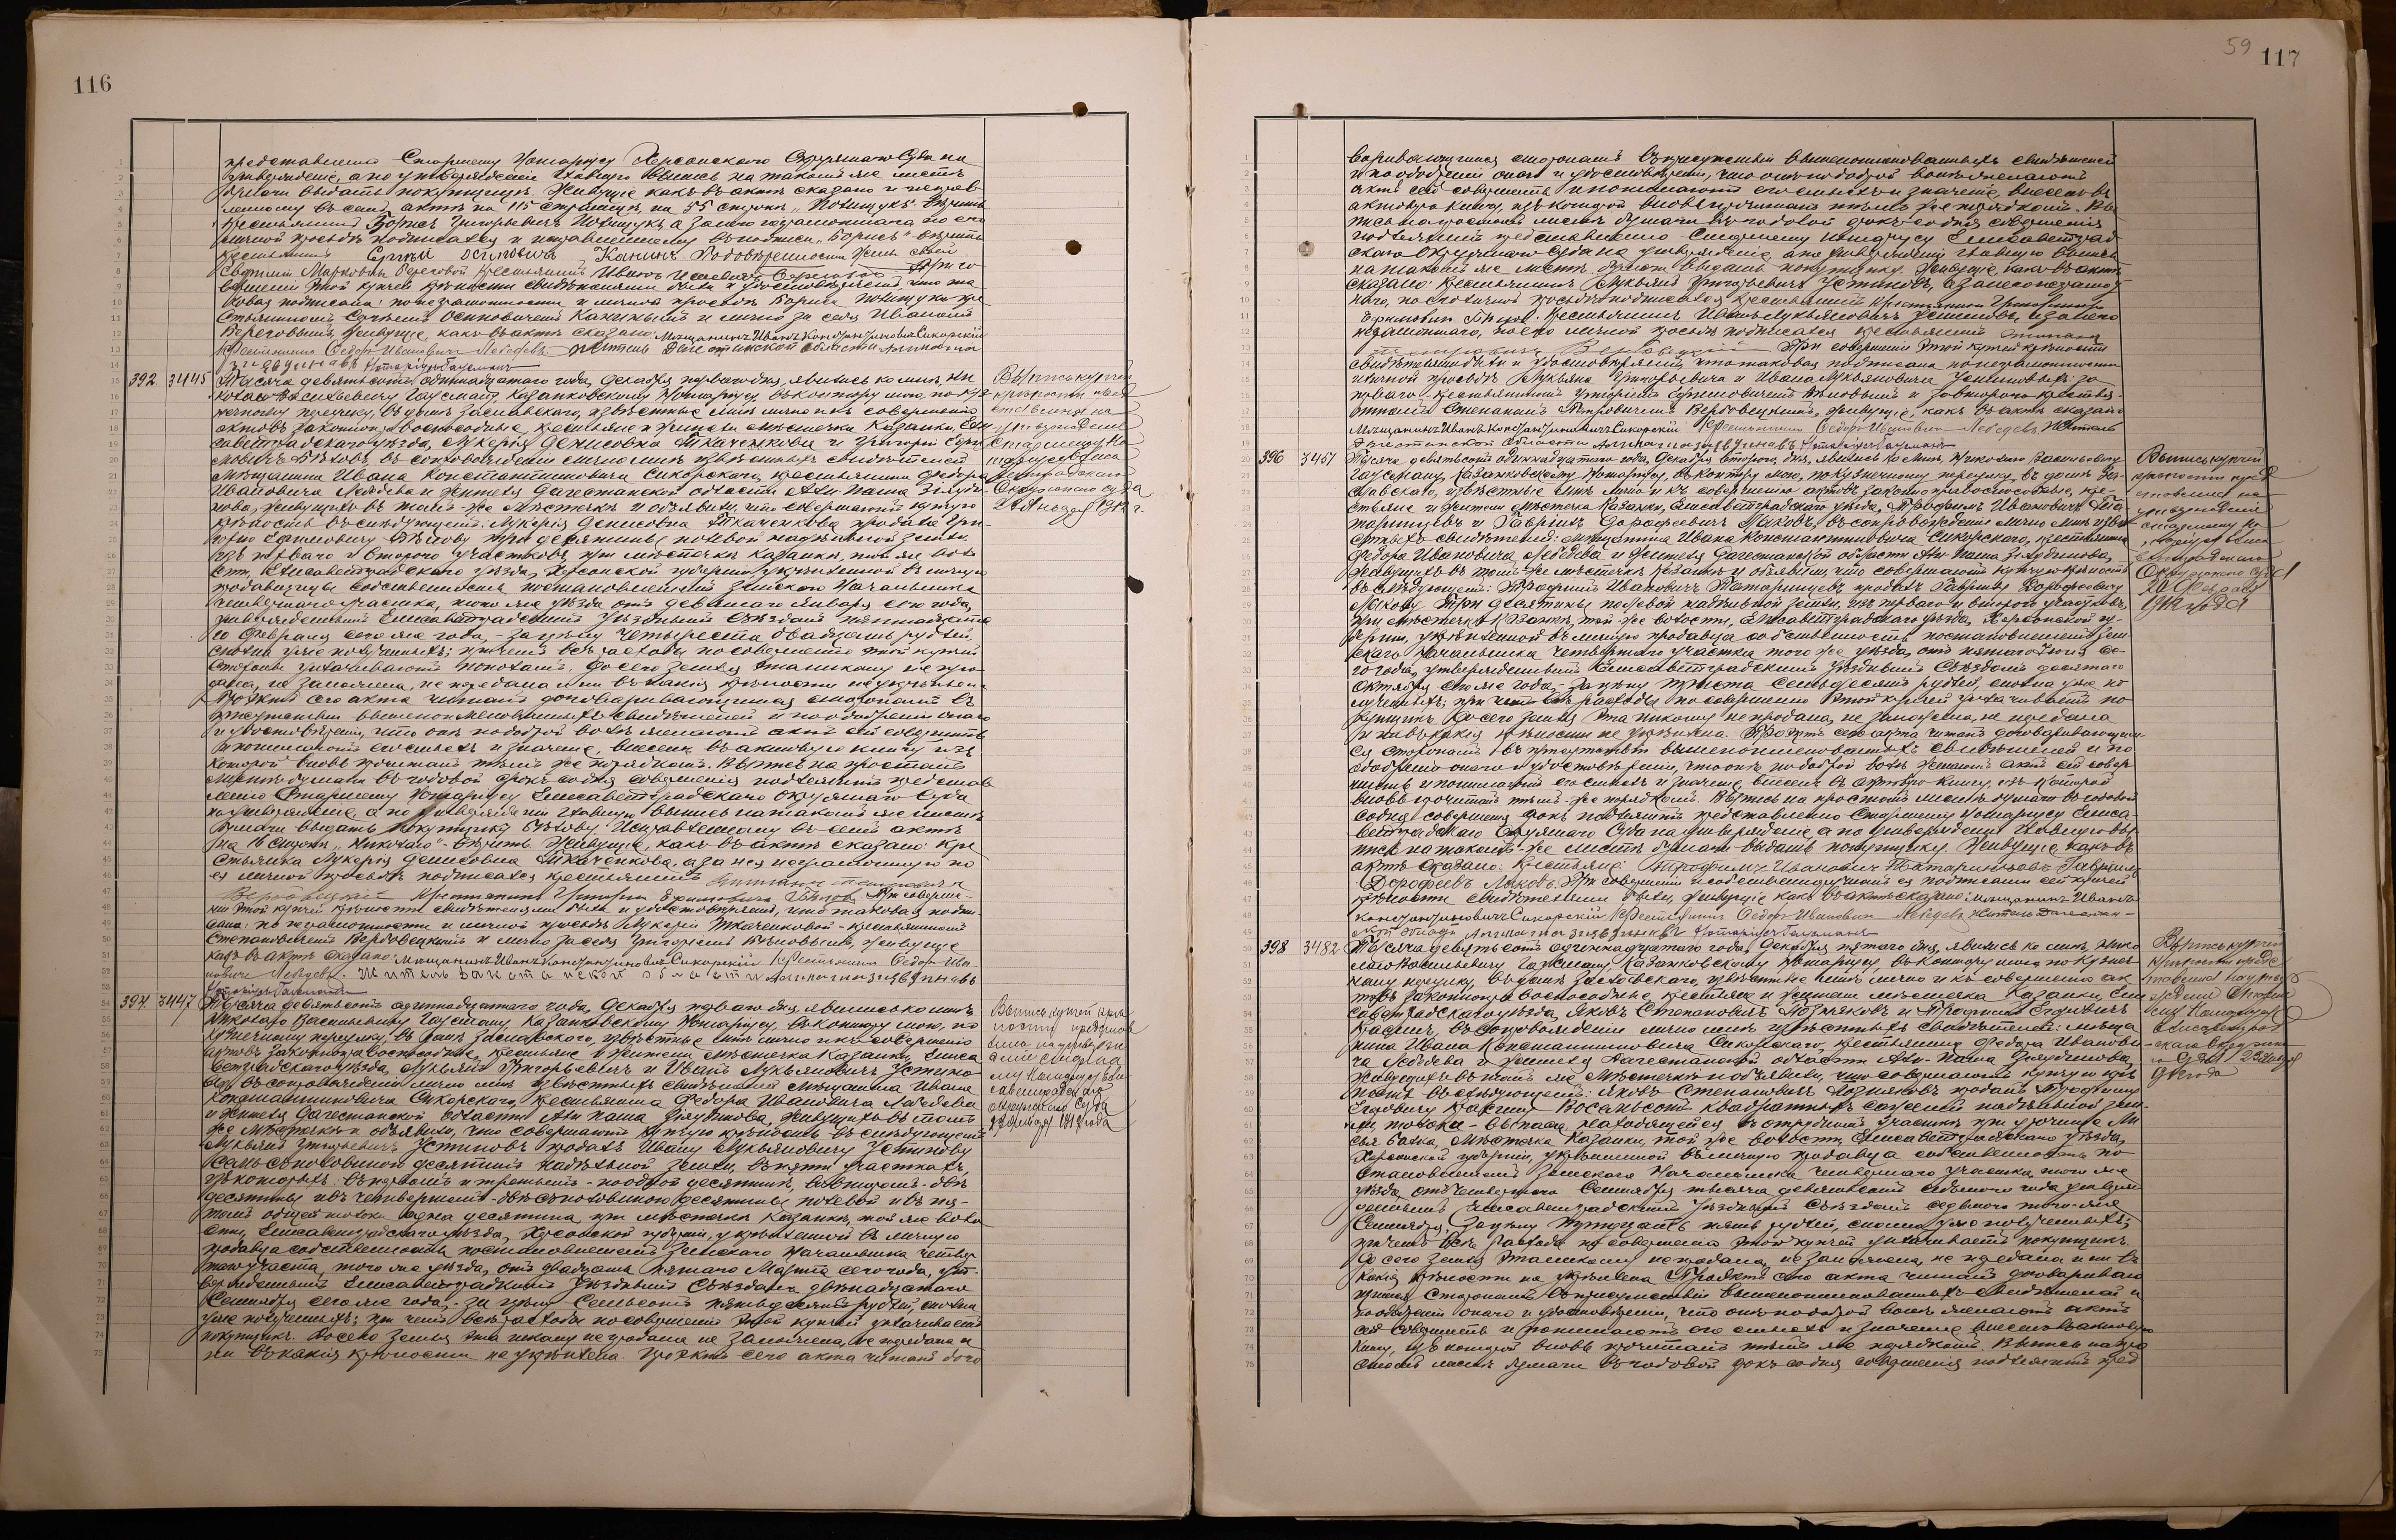 116
представлена Старшему Нотаріусу Херсонскаго Окружнаго Суда на
утвержденіе, а по утвержденіи главную выпись на таковомъ же листѣ
бумаги выдать покупщицѣ. Живущіе какъ въ актѣ сказано и исправ-
ленному въ семъ актѣ на 115 страницѣ, на 55 строкѣ
крестьянинъ Борисъ Григорьевичъ а за него неграмотнаго, по его
личной просьбѣ подписался и исправленному въ подписи „Борисъ“ вѣрить
крестьянинъ
Марковны Береговой крестьянинъ Иванъ Береговой. При со-
вершеніи этой купчей крѣпости свидѣтелями были и удостовѣряемъ, что та-
ковая подписана: по неграмотности и личной просьбѣ Бориса кре-
стьяниномъ Осиповичемъ и лично за себя Иваномъ
Береговымъ, живущіе, какъ въ актѣ сказано: Мѣщанинъ Иванъ Константиновичъ Сикорскій
Крестьянинъ Федоръ Ивановичъ Лебедевъ. Житель Дагестанской области Али паша
Нотаріусъ Гаусманъ
392 3445 Тысяча девятьсотъ одиннадцатаго года, Декабря перваго дня, явились ко мнѣ, Ни-
колаю Васильевичу Гаусману, Казанковскому Нотаріусу, въ контору мою, по Куз-
нечному переулку, въ домѣ Заславскаго, извѣстные мнѣ лично и къ совершенію
актовъ законно правоспособные, крестьяне и жители мѣстечка Казанки, Ели-
саветградскаго уѣзда, Лукерія Денисовна Ткаченкова и Григорій Ефи-
мовичъ Бѣловъ, въ сопровожденіи лично мнѣ извѣстныхъ свидѣтелей
мѣщанина Ивана Константиновича Сикорскаго, крестьянина Федора
Ивановича Лебедева и жителя Дагестанской области Али Паша Зіяуди-
нова, живущихъ въ томъ-же мѣстечкѣ и объявили, что совершаютъ купчую
крѣпость въ слѣдующемъ: Лукерія Денисовна Ткаченкова продала Гри-
горію Ефимовичу Бѣлову три десятины полевой надѣльной земли
изъ перваго и втораго участковъ, при мѣстечкѣ Казанкѣ, той же воло-
сти, Елисаветградскаго уѣзда, Херсонской губерніи, укрѣпленной въ личную
продавщицы собственность постановленіемъ Земскаго Начальника
четвертаго участка, того же уѣзда отъ девятаго Января сего года,
утвержденнымъ Елисаветградскимъ Уѣзднымъ Съѣздомъ пятнадцата-
го Февраля сего же года, - за цѣну четыреста двадцать рублей,
сполна уже полученныхъ; причемъ всѣ расходы по совершенію этой купчей
стороны уплачиваютъ пополамъ. До сего земля эта никому не про-
дана, не заложена, не передана и ни въ какія крѣпости не укрѣплена.
Проэктъ сего акта читанъ договаривающимся сторонамъ въ
присутствіи вышепоименованныхъ свидѣтелей и по одобреніи онаго
и удостовѣреніи, что они по доброй волѣ желаютъ актъ сей совершить
и понимаютъ его смыслъ и значеніе, внесенъ въ актовую книгу изъ
которой вновь прочитанъ тѣмъ же порядкомъ. Выпись на простомъ
листѣ бумаги въ годовой срокъ со дня совершенія подлежитъ представ-
ленію Старшему Нотаріусу Елисаветградскаго Окружнаго Суда
на утвержденіе, а по утвержденіи главную выпись на таковомъ же листѣ
бумаги выдать покупщику Бѣлову. Исправленному въ семъ актѣ
на 16 строкѣ „Николаю“ - вѣрить. Живущіе, какъ въ актѣ сказано: кре-
стьянка Лукерія Денисовна Ткаченкова, а за нея неграмотную по
ея личной просьбѣ подписался крестьянинъ
Вербовецкій Крестьянинъ Григорій Ефимовичъ Бѣловъ. При соверше-
ніи этой купчей крѣпости свидѣтелями были и удостовѣряемъ, что таковая подпи-
сана: по неграмотности и личной просьбѣ Лукеріи Ткаченковой - крестьяниномъ
Степановичемъ Вербовецкимъ и лично за себя Григоріемъ Бѣловымъ, живущіе
какъ въ актѣ сказано: Мѣщанинъ Иванъ Константиновичъ Сикорскій Крестьянинъ Федоръ Ива-
новичъ Лебедевъ. Житель
Нотаріусъ Гаусманъ
Выпись купчей
крѣпости пред-
ставлена на
утвержденіе
Старшему Но-
таріусу Елиса-
ветградскаго
Окружнаго Суда
1912 г.
394 3447 Тысяча девятьсотъ одиннадцатаго года, Декабря перваго дня, явились ко мнѣ
Николаю Васильевичу Гаусману, Казанковскому Нотаріусу, въ контору мою, по
Кузнечному переулку, въ домѣ Заславскаго, извѣстные мнѣ лично и къ совершенію
актовъ законно правоспособные, крестьяне и жители мѣстечка Казанки, Елиса-
ветградскаго уѣзда, Лукьянъ Григорьевичъ и Иванъ Лукьяновичъ Устино-
вы, въ сопровожденіи лично мнѣ извѣстныхъ свидѣтелей мѣщанина Ивана
Константиновича Сикорскаго, крестьянина Федора Ивановича Лебедева
и жителя Дагестанской области Али паша Зіяудинова, живущихъ въ томъ
же мѣстечкѣ и объявили, что совершаютъ купчую крѣпость въ слѣдующемъ
Лукьянъ Григорьевичъ Устиновъ продалъ Ивану Лукьяновичу Устинову
семь съ половиною десятинъ надѣльной земли, въ пяти участкахъ,
изъ которыхъ: въ первомъ и третьемъ - по одной десятинѣ, во второмъ - двѣ
десятины и въ четвертомъ - двѣ съ половиною десятины полевой и въ пя-
томъ общей толоки одна десятина, при мѣстечкѣ Казанкѣ, той же воло-
сти, Елисаветградскаго уѣзда, Херсонской губерніи, укрѣпленной въ личную
продавца собственность постановленіемъ Земскаго Начальника четвер-
таго участка, того же уѣзда, отъ двадцать пятаго Марта сего года, ут-
вержденнымъ Елисаветградскимъ Уѣзднымъ Съѣздомъ двѣнадцатаго
Сентября сего же года, - за цѣну Семьсотъ пятьдесятъ рублей, сполна
уже полученныхъ; при чемъ всѣ расходы по совершенію этой купчей уплачиваетъ
покупщикъ. До сего земля эта никому не продана, не заложена, не передана и
ни въ какія крѣпости не укрѣплена. Проэктъ сего акта читанъ дого-
Выпись купчей крѣ-
пости представ-
лена на утвержде-
ніе Старше-
му Нотаріусу Ели-
саветградскаго
Окружнаго Суда
1912 года
59 117
варивающимся сторонамъ въ присутствіи вышепоименованныхъ свидѣтелей
и по одобреніи онаго и удостовѣреніи, что они по доброй волѣ желаютъ
актъ сей совершить и понимаютъ его смыслъ и значеніе, внесенъ въ
актовую книгу, изъ которой вновь прочитанъ тѣмъ же порядкомъ. Вы-
пись на простомъ листѣ бумаги въ годовой срокъ со дня совершенія
подлежитъ представленію Старшему Нотаріусу Елисаветград-
скаго Окружнаго Суда на утвержденіе, а по утвержденіи главную выпись
на таковомъ же листѣ бумаги выдать покупщику. Живущіе, какъ въ актѣ
сказано: крестьянинъ Лукьянъ Григорьевичъ Устиновъ, а за него неграмот-
наго, по его личной просьбѣ подписался крестьянинъ
Ефимовичъ Бѣловъ. Крестьянинъ Иванъ Лукьяновичъ Устиновъ, а за него
неграмотнаго, по его личной просьбѣ подписался крестьянинъ Степанъ
Петровичъ Вербовецкій. При совершеніи этой купчей крѣпости
свидѣтелями были и удостовѣряемъ, что таковая подписана по неграмотности
и личной просьбѣ Лукьяна Григорьевича и Ивана Лукьяновича Устиновыхъ за
перваго - крестьяниномъ Григоріемъ Ефимовичемъ Бѣловымъ и за втораго крестья-
ниномъ Степаномъ Петровичемъ Вербовецкимъ, живущіе, какъ въ актѣ сказано
Мѣщанинъ Иванъ Константиновичъ Сикорскій Крестьянинъ Федоръ Ивановичъ Лебедевъ. Житель
Дагестанской области Али паша Зіяудиновъ Нотаріусъ Гаусманъ
396 3457 Тысяча девятьсотъ одиннадцатаго года, Декабря второго дня, явились ко мнѣ, Николаю Васильевичу
Гаусману, Казанковскому Нотаріусу, въ контору мою, по Кузнечному переулку, въ домѣ За-
славскаго, извѣстные мнѣ лично и къ совершенію актовъ законно правоспособные, кре-
стьяне и жители мѣстечка Казанки, Елисаветградскаго уѣзда, Трофимъ Ивановичъ Тата-
ринцевъ и Гавріилъ Дорофеевичъ Маковъ, въ сопровожденіи лично мнѣ извѣ-
стныхъ свидѣтелей: мѣщанина Ивана Константиновича Сикорскаго, крестьянина
Федора Ивановича Лебедева и жителя Дагестанской области Али Паша Зіяудинова,
живущихъ въ томъ же мѣстечкѣ Казанкѣ и объявили, что совершаютъ купчую крѣпость
въ слѣдующемъ: Трофимъ Ивановичъ Татаринцевъ продалъ Гавріилу Дорофеевичу
Макову три десятины полевой надѣльной земли, изъ перваго и второго участковъ,
при мѣстечкѣ Казанкѣ, той же волости, Елисаветградскаго уѣзда, Херсонской гу-
берніи, укрѣпленной въ личную продавца собственность постановленіемъ Зем-
скаго Начальника четвертаго участка того же уѣзда, отъ пятаго Іюля се-
го года, утвержденнымъ Елисаветградскимъ Уѣзднымъ Съѣздомъ десятаго
Октября сего же года, - за цѣну триста семьдесятъ рублей, сполна уже по-
лученныхъ; при чемъ всѣ расходы по совершенію этой купчей уплачиваетъ по-
купщикъ. До сего земля эта никому не продана, не заложена, не передана
и ни въ какія крѣпости не укрѣплена. Проэктъ сего акта читанъ договаривающим-
ся сторонамъ въ присутствіи вышепоименованныхъ свидѣтелей и по
одобреніи онаго и удостовѣреніи, что они по доброй волѣ желаютъ актъ сей совер-
шить и понимаютъ его смыслъ и значеніе, внесенъ въ актовую книгу, изъ которой
вновь прочитанъ тѣмъ же порядкомъ. Выпись на простомъ листѣ бумаги въ годовой
со дня совершенія срокъ подлежитъ представленію Старшему Нотаріусу Елиса-
ветградскаго Окружнаго Суда на утвержденіе, а по утвержденіи главную вы-
пись на таковомъ-же листѣ бумаги выдать покупщику. Живущіе, какъ въ
актѣ сказано: Крестьяне: Трофимъ Ивановичъ Татаринцевъ Гавріилъ
Дорофеевъ Маковъ. При совершеніи и собственноручномъ ея подписаніи сей купчей
крѣпости свидѣтелями были, живущіе какъ въ актѣ сказано: Мѣщанинъ Иванъ
Константиновичъ Сикорскій Крестьянинъ Федоръ Ивановичъ Лебедевъ Житель Дагестан-
ской области Али паша Зіяудиновъ Нотаріусъ Гаусманъ
Выпись купчей
крѣпости пред-
ставлена на
утвержденіе
Старшему Но-
таріусу Елиса-
ветградскаго
Окружнаго Суда
1912 года
398 3482 Тысяча девятьсотъ одиннадцатаго года, Декабря пятаго дня, явились ко мнѣ, Нико-
лаю Васильевичу Гаусману, Казанковскому Нотаріусу, въ контору мою, по Кузнеч-
ному переулку, въ домѣ Заславскаго, извѣстные мнѣ лично и къ совершенію ак-
товъ законно правоспособные, крестьяне и жители мѣстечка Казанки, Ели-
саветградскаго уѣзда, Яковъ Степановичъ Позняковъ и Трофимъ
въ сопровожденіи лично мнѣ извѣстныхъ свидѣтелей: мѣща-
нина Ивана Константиновича Сикорскаго, крестьянина Федора Иванови-
ча Лебедева и жителя Дагестанской области Али-Паша Зіяудинова,
живущихъ въ томъ же мѣстечкѣ и объявили, что совершаютъ купчую крѣ-
пость въ слѣдующемъ: Яковъ Степановичъ Позняковъ продалъ Трофиму
восемьсотъ квадратныхъ саженей надѣльной зем-
ли, толоки - выпаса, находящейся въ отрубномъ участкѣ при урочищѣ
балка, мѣстечка Казанки, той же волости, Елисаветградскаго уѣзда,
Херсонской губерніи, укрѣпленной въ личную продавца собственность по-
становленіемъ Земскаго Начальника четвертаго участка, того же
уѣзда, отъ четвертаго Сентября тысяча девятьсотъ седьмого года, утвер-
жденнымъ Елисаветградскимъ Уѣзднымъ Съѣздомъ седьмого того-же
Сентября, за цѣну тридцать пять рублей, сполна уже полученныхъ;
причемъ всѣ расходы по совершенію этой купчей уплачиваетъ покупщикъ.
До сего земля эта никому не продана, не заложена, не передана и ни въ
какія крѣпости не укрѣплена. Проэктъ сего акта читанъ договариваю-
щимся сторонамъ въ присутствіи вышепоименованныхъ свидѣтелей и
по одобреніи онаго и удостовѣреніи, что они по доброй волѣ желаютъ актъ
сей совершить и понимаютъ его смыслъ и значеніе, внесенъ въ актовую
книгу, изъ которой вновь прочитанъ тѣмъ же порядкомъ. Выпись на про-
стомъ листѣ бумаги въ годовой срокъ со дня совершенія подлежитъ пред-
Выпись купчей
крѣпости пред-
ставлена на утвер-
жденіе Старше-
му Нотаріусу
Елисаветград-
скаго Окружна-
го Суда
912 года